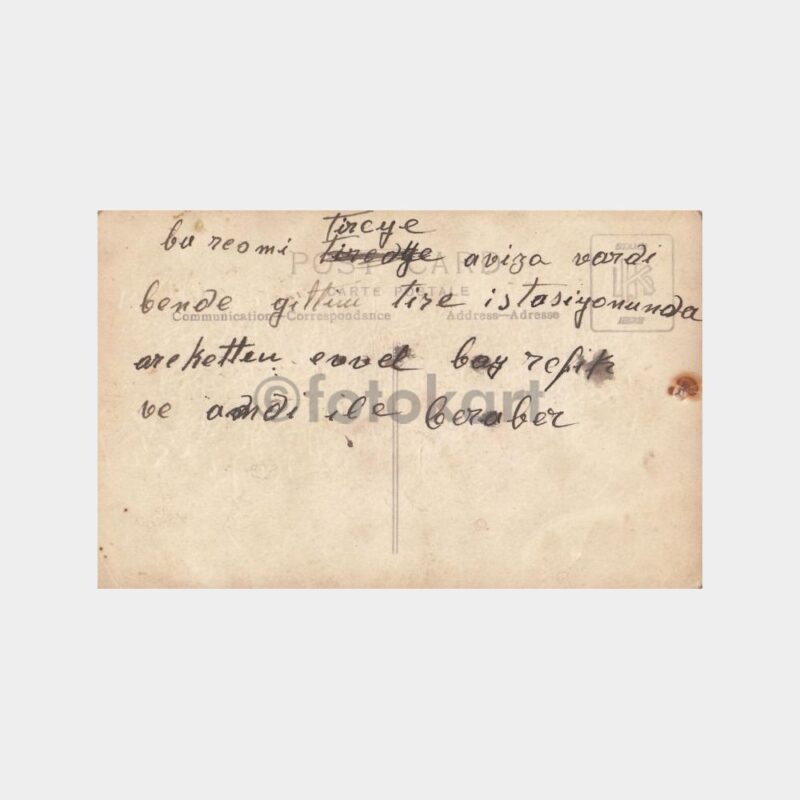 Tireye
bu resmi tiredye aviza vardi
POST CARD
CARTE POSTALE
bende gittim tire istasiyonunda
Communication–Correspondance Address–Adresse
areketten evvel bay refik
©fotokart
ve amdi ile beraber